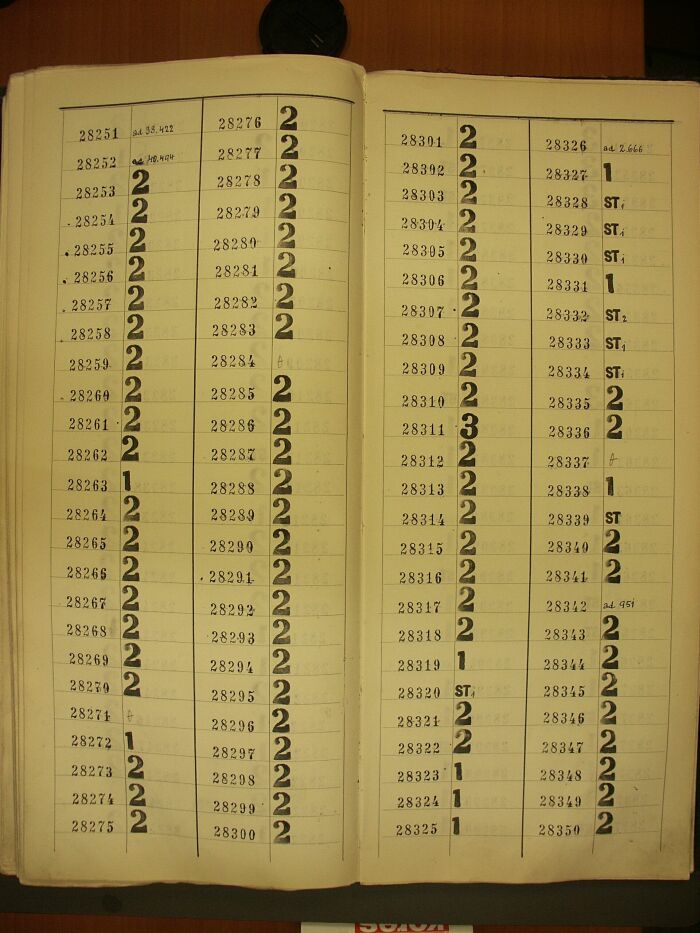 28251 ad 33.422
28252 ad 40.494
28253 2
28254 2
28255 2
28256 2
28257 2
28258 2
28259 2
28260 2
28261 2
28262 2
28263 1
28264 2
28265 2
28266 2
28267 2
28268 2
28269 2
28270 2
28271 A
28272 1
28273 2
28274 2
28275 2
28276 2
28277 2
28278 2
28279 2
28280 2
28281 2
28282 2
28283 2
28284 A
28285 2
28286 2
28287 2
28288 2
28289 2
28290 2
28291 2
28292 2
28293 2
28294 2
28295 2
28296 2
28297 2
28298 2
28299 2
28300 2
28301 2
28302 2
28303 2
28304 2
28305 2
28306 2
28307 2
28308 2
28309 2
28310 2
28311 3
28312 2
28313 2
28314 2
28315 2
28316 2
28317 2
28318 2
28319 1
28320 ST1
28321 2
28322 2
28323 1
28324 1
28325 1
28326 ad 2.666
28327 1
28328 ST1
28329 ST1
28330 ST1
28331 1
28332 ST2
28333 ST1
28334 ST1
28335 2
28336 2
28337 A
28338 1
28339 ST
28340 2
28341 2
28342 ad 951
28343 2
28344 2
28345 2
28346 2
28347 2
28348 2
28349 2
28350 2